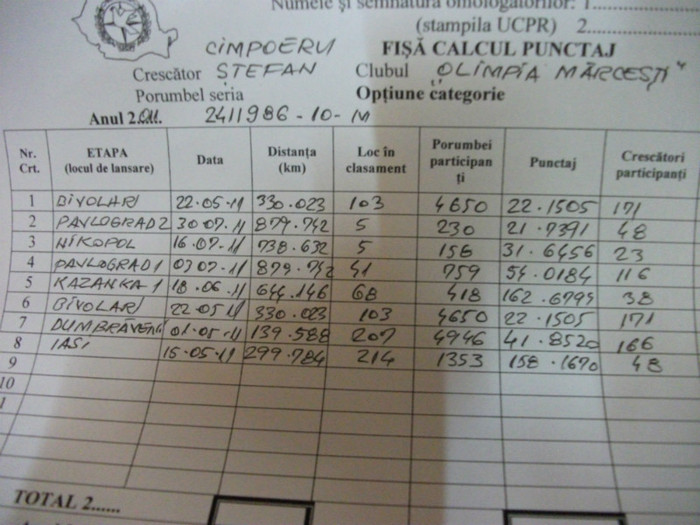 Numele şi semnătura omologatorilor: 1
(stampila UCPR) 2
CIMPOERU FIŞĂ CALCUL PUNCTAJ
Crescător ŞTEFAN Clubul "OLIMPIA MĂRCEŞTI"
Porumbel seria Opţiune categorie
Anul 2.011. 2411986-10-M
Nr. Crt. ETAPA (locul de lansare) Data Distanţa (km) Loc în clasament Porumbei participanţi Punctaj Crescători participanţi
1 BIVOLARI 22.05.11 330.023 103 4650 22.1505 171
2 PAVLOGRAD 2 30.07.11 879.742 5 230 21.7391 48
3 NIKOPOL 16.07.11 738.632 5 156 31.6456 23
4 PAVLOGRAD 1 03.07.11 879.742 41 759 54.0184 116
5 KAZANKA 1 18.06.11 644.146 68 418 162.6794 38
6 BIVOLARI 22.05.11 330.023 103 4650 22.1505 171
7 DUMBRĂVENI 01.05.11 139.588 207 4946 41.8520 166
8 IASI 15.05.11 299.784 214 1353 158.1670 48
9
10
1
TOTAL 2......